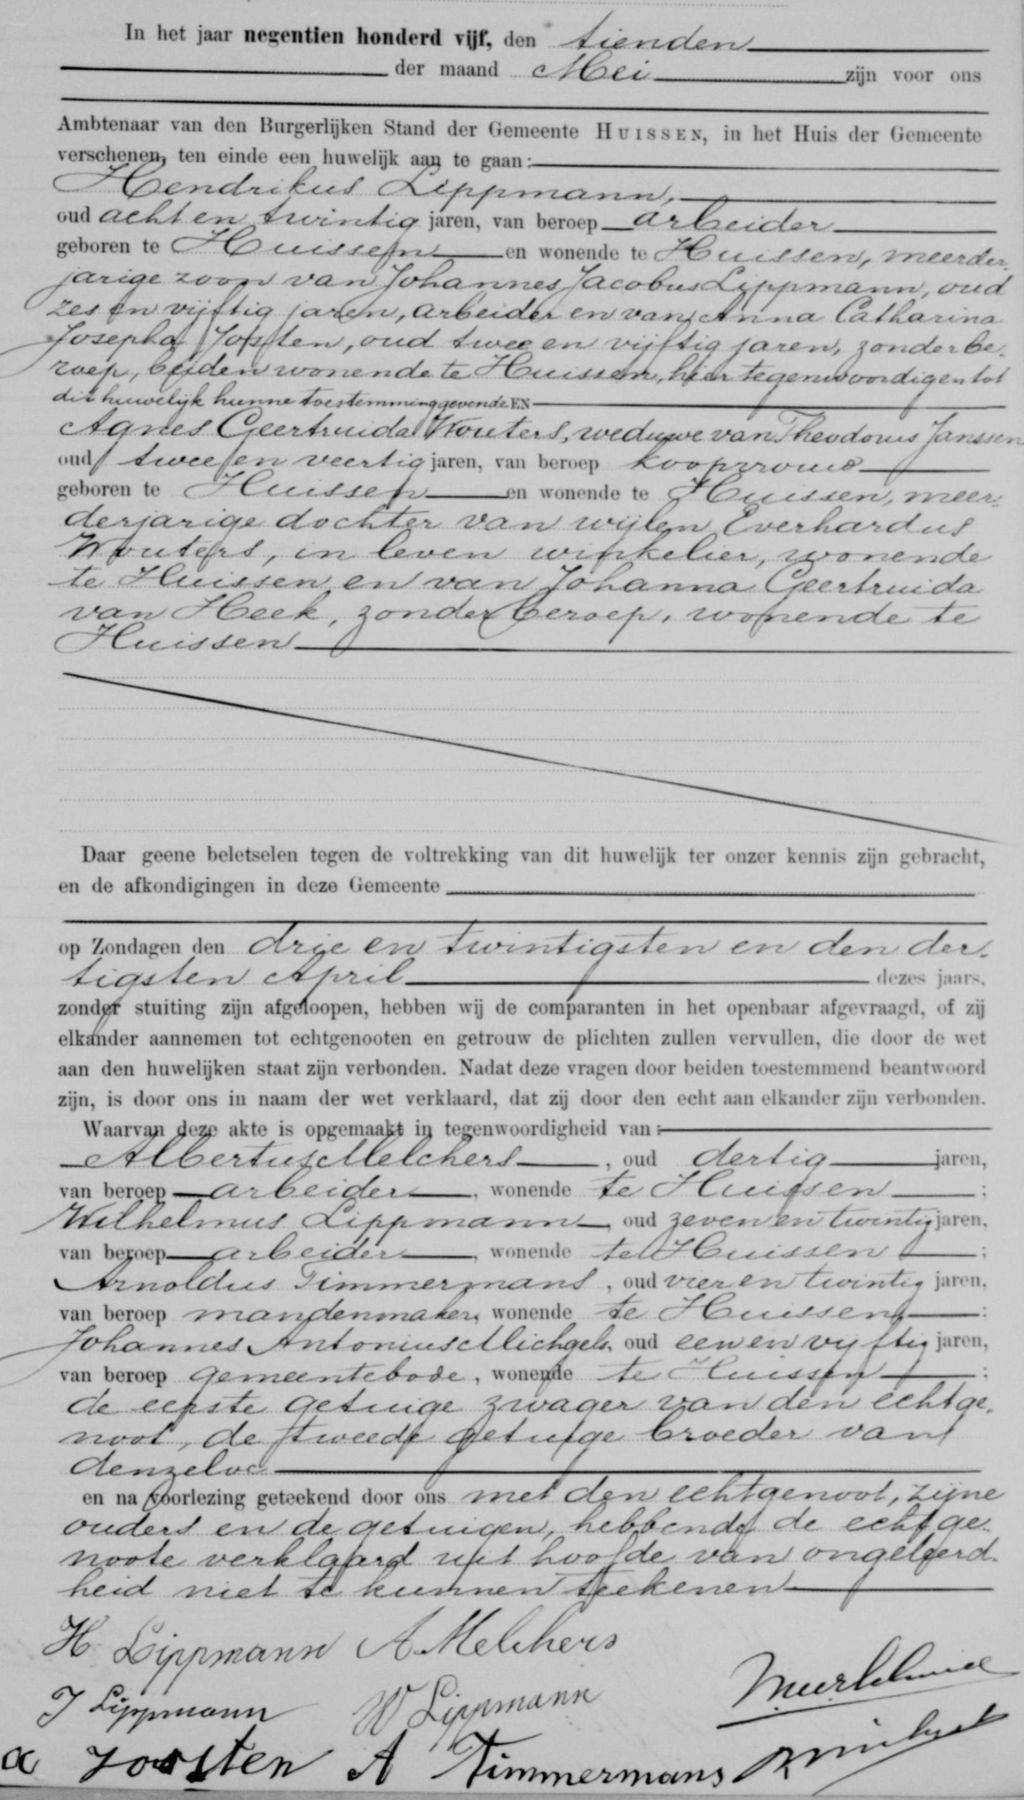 In het jaar negentien honderd vijf, den tienden
der maand Mei zijn voor ons
Ambtenaar van den Burgerlijken Stand der Gemeente HUISSEN, in het Huis der Gemeente
verschenen, ten einde een huwelijk aan te gaan:
Hendrikus Lippmann,
oud acht en twintig jaren, van beroep arbeider
geboren te Huissen en wonende te Huissen, meerder-
jarige zoon van Johannes Jacobus Lippmann, oud
zes en vijftig jaren, arbeider en van Anna Catharina
Josepha Joosten, oud twee en vijftig jaren, zonder be-
roep, beiden wonende te Huissen, hier tegenwoordig en tot
dit huwelijk hunne toestemming gevende EN
Agnes Geertruida Wouters, weduwe van Theodorus Janssen
oud twee en veertig jaren, van beroep koopvrouw
geboren te Huissen en wonende te Huissen, meer-
derjarige dochter van wijlen Everhardus
Wouters, in leven winkelier, wonende
te Huissen en van Johanna Geertruida
van Heek, zonder beroep, wonende te
Huissen
Daar geene beletselen tegen de voltrekking van dit huwelijk ter onzer kennis zijn gebracht,
en de afkondigingen in deze Gemeente
op Zondagen den drie en twintigsten en den der-
tigsten April dezes jaars,
zonder stuiting zijn afgeloopen, hebben wij de comparanten in het openbaar afgevraagd, of zij
elkander aannemen tot echtgenooten en getrouw de plichten zullen vervullen, die door de wet
aan den huwelijken staat zijn verbonden. Nadat deze vragen door beiden toestemmend beantwoord
zijn, is door ons in naam der wet verklaard, dat zij door den echt aan elkander zijn verbonden.
Waarvan deze akte is opgemaakt in tegenwoordigheid van:
Albertus Melchers, oud dertig jaren,
van beroep arbeider, wonende te Huissen;
Wilhelmus Lippmann, oud zeven en twintig jaren,
van beroep arbeider, wonende te Huissen;
Arnoldus Timmermans, oud vier en twintig jaren,
van beroep mandenmaker, wonende te Huissen;
Johannes Antonius Michgels, oud een en vijftig jaren,
van beroep gemeentebode, wonende te Huissen;
de eerste getuige zwager van den echtge-
noot, de tweede getuige broeder van
denzelve
en na voorlezing geteekend door ons met den echtgenoot, zijne
ouders en de getuigen, hebbende de echtge-
noote verklaard uit hoofde van ongeleerd-
heid niet te kunnen teekenen
H Lippmann A Melchers
J Lippmann W Lippmann
a Joosten A Timmermans